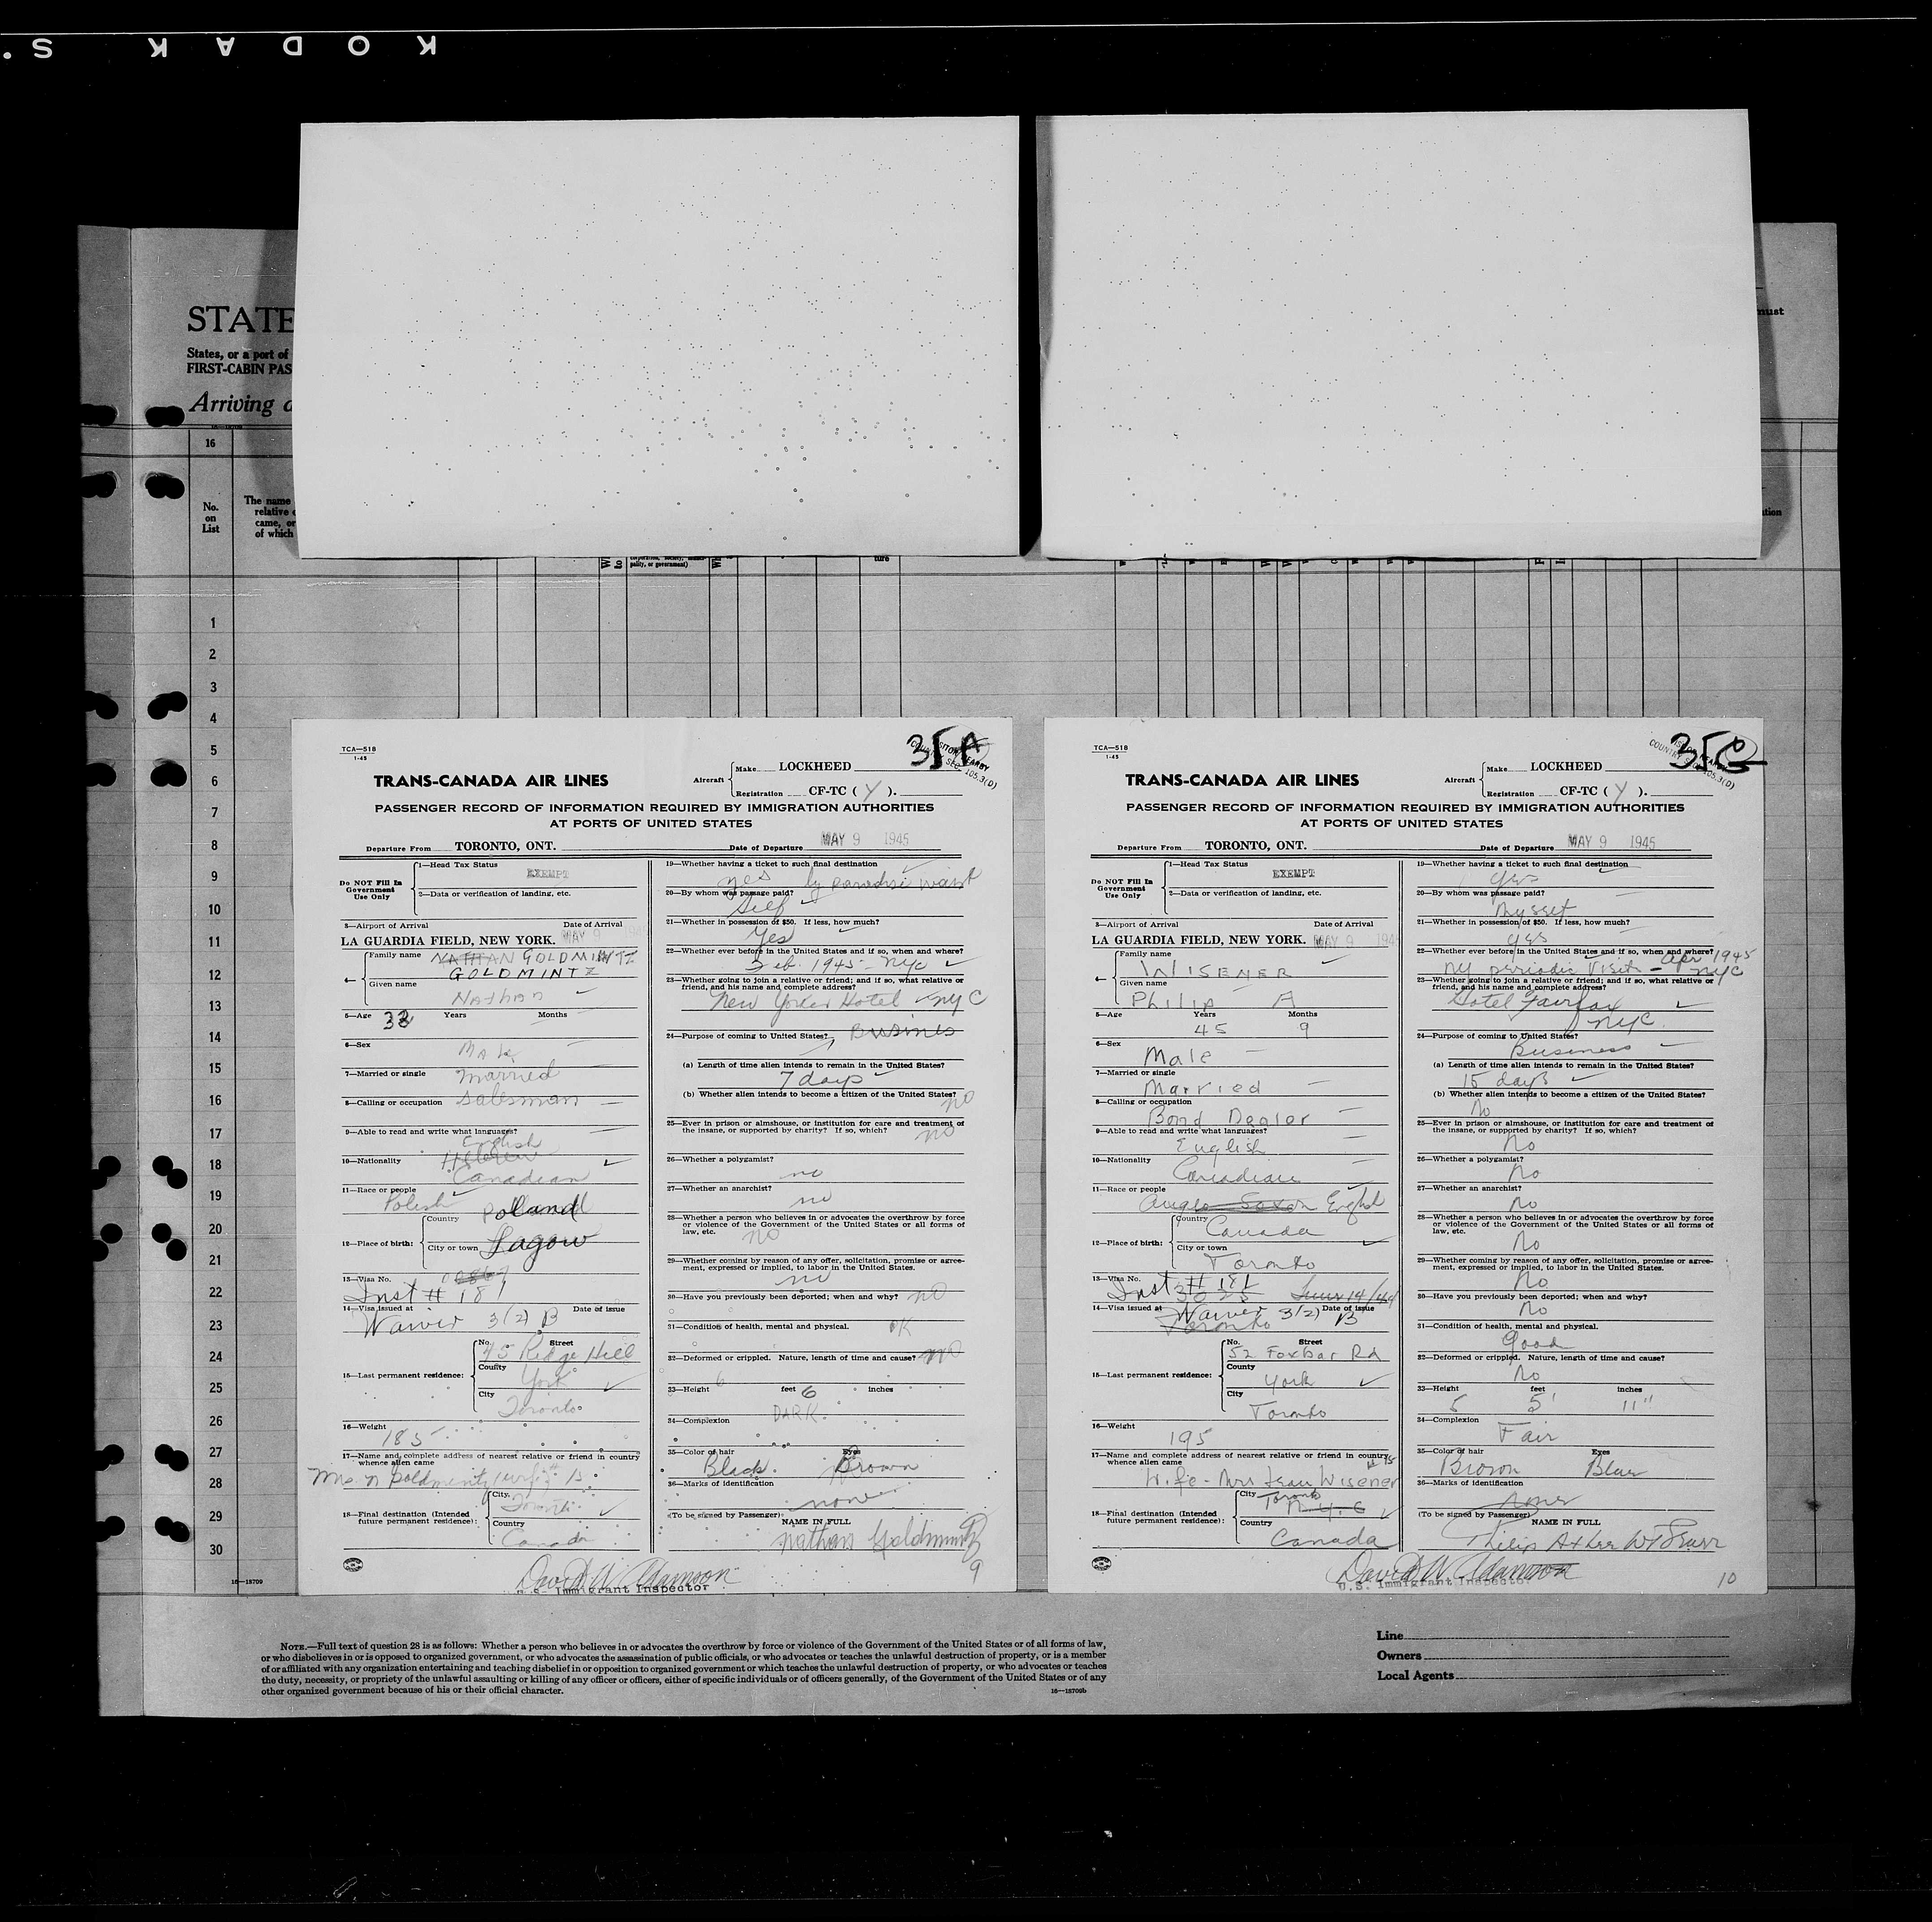 KODAK S.
STATE
States, or a port of
FIRST-CABIN PAS
Arriving
must
16
No.
on
List
The name
relative
came, or
of which
pality, or government)
ture
1
2
3
4
5
6
7
8
9
10
11
12
13
14
15
16
17
18
19
20
21
22
23
24
25
26
27
28
29
30
16—18709
TCA—518
1-45
35A
TRANS-CANADA AIR LINES
Aircraft
Make LOCKHEED
Registration CF-TC ( Y ).
SEC. 105.3(D)
PASSENGER RECORD OF INFORMATION REQUIRED BY IMMIGRATION AUTHORITIES
AT PORTS OF UNITED STATES
Departure From TORONTO, ONT. Date of Departure MAY 9 1945
Do NOT Fill In
Government
Use Only
1—Head Tax Status
EXEMPT
2—Data or verification of landing, etc.
3—Airport of Arrival Date of Arrival
LA GUARDIA FIELD, NEW YORK. MAY 9
4— Family name NATHAN GOLDMINTZ
GOLDMINTZ
Given name
Nathan
5—Age 33 Years Months
6—Sex Male
7—Married or single Married
8—Calling or occupation Salesman
9—Able to read and write what languages?
English
Hebrew
10—Nationality
Canadian
11—Race or people
Polish
12—Place of birth:
Country Poland
City or town Lagow
13—Visa No.
Inst # 181
14—Visa issued at Date of issue
Waiver 3(2) B
15—Last permanent residence:
No. Street
45 Ridge Hill
County
York
City
Toronto
16—Weight
185
17—Name and complete address of nearest relative or friend in country
whence alien came
Mrs. N Goldmintz
18—Final destination (Intended
future permanent residence):
City
Toronto
Country
Canada
19—Whether having a ticket to such final destination
yes
20—By whom was passage paid?
Self
21—Whether in possession of $50. If less, how much?
Yes
22—Whether ever before in the United States and if so, when and where?
Feb. 1945 - NYC
23—Whether going to join a relative or friend; and if so, what relative or
friend, and his name and complete address?
New Yorker Hotel NYC
24—Purpose of coming to United States? Busines
(a) Length of time alien intends to remain in the United States?
7 days
(b) Whether alien intends to become a citizen of the United States?
no
25—Ever in prison or almshouse, or institution for care and treatment of
the insane, or supported by charity? If so, which? no
26—Whether a polygamist?
no
27—Whether an anarchist?
no
28—Whether a person who believes in or advocates the overthrow by force
or violence of the Government of the United States or all forms of
law, etc. no
29—Whether coming by reason of any offer, solicitation, promise or agree-
ment, expressed or implied, to labor in the United States.
no
30—Have you previously been deported; when and why? no
31—Condition of health, mental and physical. OK
32—Deformed or crippled. Nature, length of time and cause? no
33—Height 6 feet 6 inches
34—Complexion DARK.
35—Color of hair Eyes
Black. Brown
36—Marks of identification
none
(To be signed by Passenger)
NAME IN FULL
Nathan Goldmintz
David W. Adamson
U.S. Immigrant Inspector
9
TCA—518
1-45
35
TRANS-CANADA AIR LINES
Aircraft
Make LOCKHEED
Registration CF-TC ( Y ).
105.3(D)
PASSENGER RECORD OF INFORMATION REQUIRED BY IMMIGRATION AUTHORITIES
AT PORTS OF UNITED STATES
Departure From TORONTO, ONT. Date of Departure MAY 9 1945
Do NOT Fill In
Government
Use Only
1—Head Tax Status
EXEMPT
2—Data or verification of landing, etc.
3—Airport of Arrival Date of Arrival
LA GUARDIA FIELD, NEW YORK. MAY 9 194
4— Family name
WISENER
Given name
Philip A
5—Age Years Months
45 9
6—Sex
Male
7—Married or single
Married
8—Calling or occupation
Bond Dealer
9—Able to read and write what languages?
English
10—Nationality
Canadian
11—Race or people
Anglo Saxon English
12—Place of birth:
Country
Canada
City or town
Toronto
13—Visa No.
Inst # 181
3025 June 14/44
14—Visa issued at Date of issue
Waiver 3(2) B
Toronto
15—Last permanent residence:
No. Street
52 Foxbar Rd
County
York
City
Toronto
16—Weight
195
17—Name and complete address of nearest relative or friend in country
whence alien came
Wife - Mrs Jean Wisener
18—Final destination (Intended
future permanent residence):
City
Toronto
N.Y.C
Country
Canada
19—Whether having a ticket to such final destination
yes
20—By whom was passage paid?
Myself
21—Whether in possession of $50. If less, how much?
yes
22—Whether ever before in the United States and if so, when and where?
NY periodic visits - Apr 1945
NYC
23—Whether going to join a relative or friend; and if so, what relative or
friend, and his name and complete address?
Hotel Fairfax
NYC.
24—Purpose of coming to United States?
Business
(a) Length of time alien intends to remain in the United States?
15 days
(b) Whether alien intends to become a citizen of the United States?
No
25—Ever in prison or almshouse, or institution for care and treatment of
the insane, or supported by charity? If so, which?
No
26—Whether a polygamist?
No
27—Whether an anarchist?
No
28—Whether a person who believes in or advocates the overthrow by force
or violence of the Government of the United States or all forms of
law, etc.
No
29—Whether coming by reason of any offer, solicitation, promise or agree-
ment, expressed or implied, to labor in the United States.
No
30—Have you previously been deported; when and why?
No
31—Condition of health, mental and physical.
Good
32—Deformed or crippled. Nature, length of time and cause?
No
33—Height feet inches
5 5' 11"
34—Complexion
Fair
35—Color of hair Eyes
Brown Blue
36—Marks of identification
None
(To be signed by Passenger)
NAME IN FULL
David W. Adamson
U.S. Immigrant Inspector
10
NOTE.—Full text of question 28 is as follows: Whether a person who believes in or advocates the overthrow by force or violence of the Government of the United States or of all forms of law,
or who disbelieves in or is opposed to organized government, or who advocates the assassination of public officials, or who advocates or teaches the unlawful destruction of property, or is a member
of or affiliated with any organization entertaining and teaching disbelief in or opposition to organized government or which teaches the unlawful destruction of property, or who advocates or teaches
the duty, necessity, or propriety of the unlawful assaulting or killing of any officer or officers, either of specific individuals or of officers generally, of the Government of the United States or of any
other organized government because of his or their official character.
16—18709b
Line
Owners
Local Agents